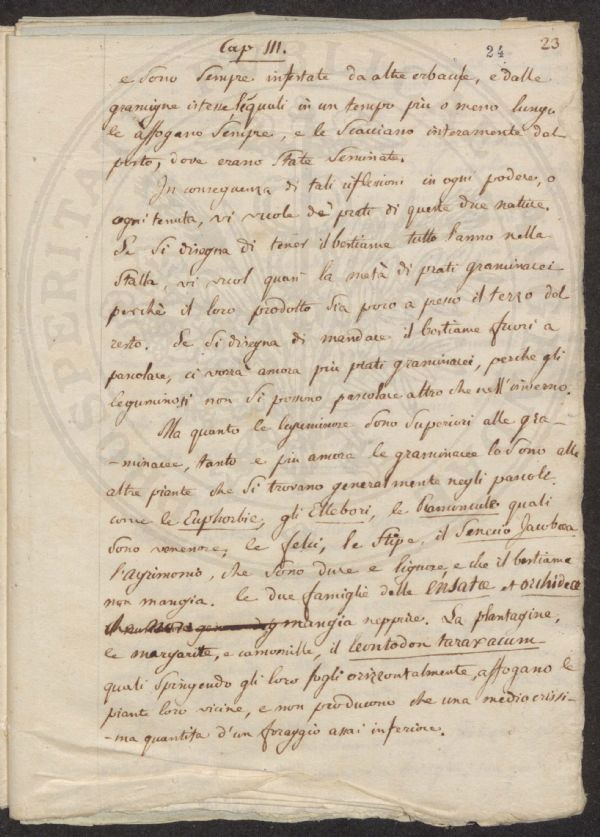 Cap III.
24
23
e sono sempre infestate da altre erbacce, e dalle
gramigne istesse, le quali in un tempo più o meno lungo
le affogano sempre, e le scacciano interamente dal
posto, dove erano state seminate.
In conseguenza di tali riflessioni in ogni podere, o
ogni tenuta, vi vuole de' prati di queste due nature.
Se si disegna di tener il bestiame tutto l'anno nella
stalla, vi vuol quasi la metà di prati graminacei
perchè il loro prodotto sia poco a presso il terzo del
resto. Se si disegna di mandare il bestiame fuori a
pascolare, ci vorrà ancora più prati graminacei, perchè gli
leguminosi non si possono pascolare altro che nell'inverno.
Ma quanto le leguminose sono superiori alle gra-
-minacee, tanto e più ancora le graminacee lo sono alle
altre piante che si trovano generalmente negli pascoli.
come le Euphorbie, gli Ellebori, le Ramuncule quali
sono venenose, le felci, le Stipe, il Senecio Jacobæa
l'agrimonio, che sono dure e lignose, e che il bestiame
non mangia. le due famiglie delle Ensatæ et orchideæ
mangia neppure. La plantagine,
le margarite, e camomille, il leontodon taraxacum
quali spingendo gli loro fogli orizzontalmente, affogano le
piante loro vicine, e non producono che una mediocrissi-
-ma quantita d'un foraggio assai inferiore.